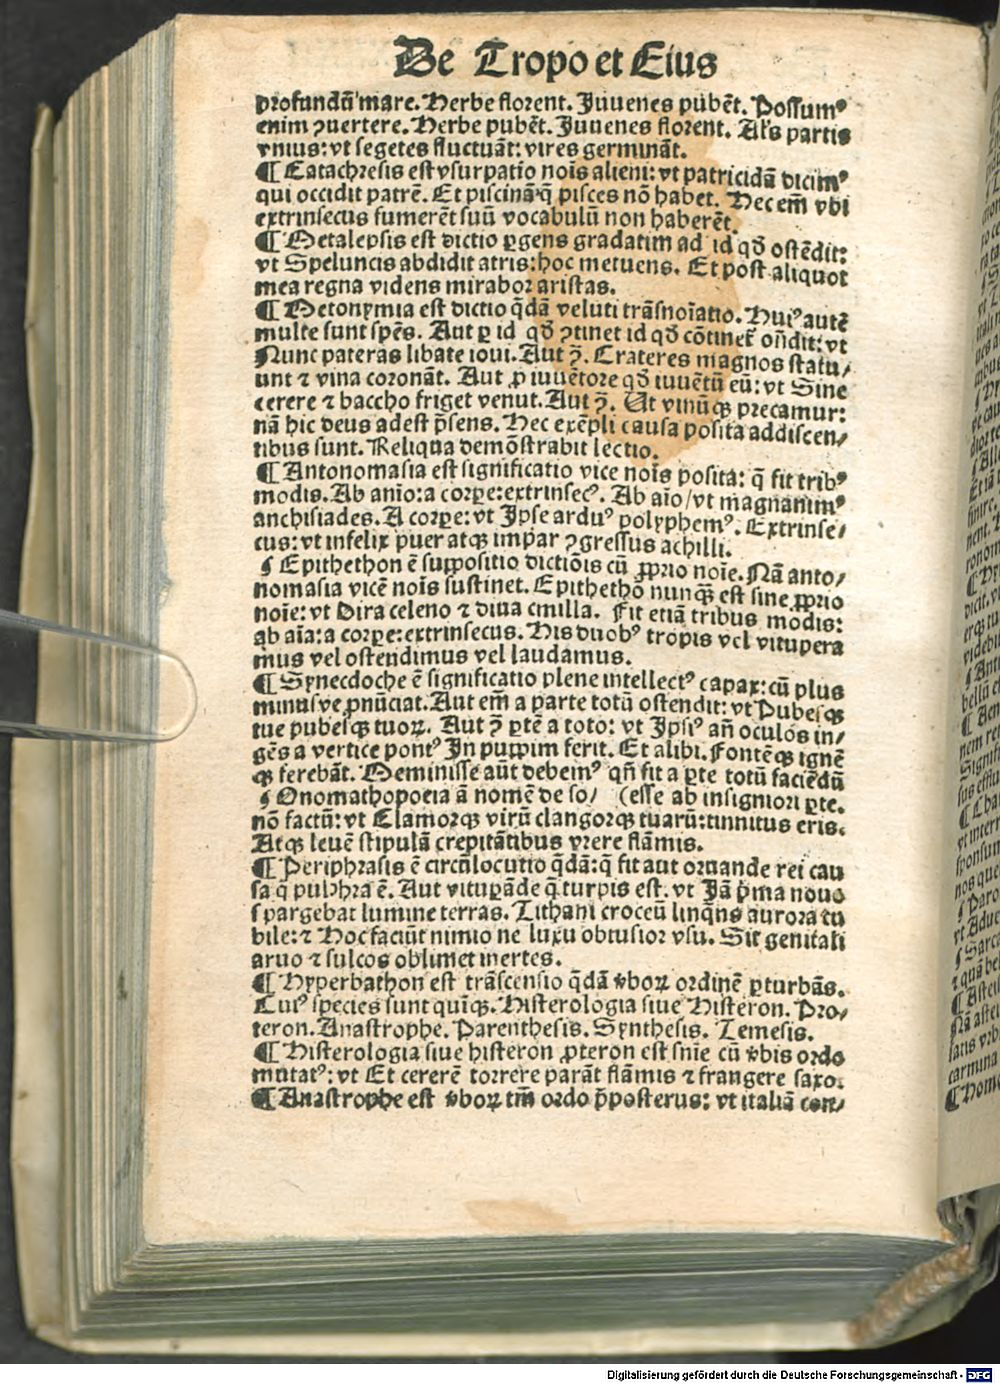 De Tropo et Eius
profundū mare. Herbe florent. Juuenes pubēt. Possumꝰ
enim ꝯuertere. Herbe pubēt. Juuenes florent. Al's partis
vnius: vt segetes fluctuāt: vires germināt.
¶ Catachresis est vsurpatio nois alieni: vt patricidā dicimꝰ
qui occidit patrē. Et piscinā q̄ pisces nō habet. Hec em̄ vbi
extrinsecus sumerēt suū vocabulū non haberēt.
¶ Metalepsis est dictio ꝑgens gradatim ad id qd̄ ostēdit:
vt Speluncis abdidit atris: hoc metuens. Et post aliquot
mea regna videns mirabor aristas.
¶ Metonymia est dictio q̄dā veluti trāsnoīatio. Huiꝰ autē
multe sunt spēs. Aut ꝑ id qd̄ ꝯtinet id qd̄ cōtinet̄ oñdit: vt
Nunc pateras libate ioui. Aut ꝫ̄. Crateres magnos statu/
unt ⁊ vina coronāt. Aut ꝓ iuuētore qd̄ iuuētū eū: vt Sine
cerere ⁊ baccho friget venut. Aut ꝫ̄. Ut vinūqꝫ precamur:
nā hic deus adest p̄sens. Hec exēpli causa posita addiscen/
tibus sunt. Reliqua demōstrabit lectio.
¶ Antonomasia est significatio vice nois posita: q̄ fit tribꝰ
modis. Ab anīo: a corpe: extrinsecꝰ. Ab aīo/ vt magnanimꝰ
anchisiades. A corpe: vt Ipse arduꝰ polyphemꝰ. Extrinse/
cus: vt infelix puer atqꝫ impar ꝯgressus achilli.
¶ Epithethon ē suppositio dictiōis cū ꝓprio noīe. Nā anto/
nomasia vicē nois sustinet. Epithethō nunqꝫ est sine ꝓprio
noīe: vt Dira celeno ⁊ diua cmilla. Fit etiā tribus modis:
ab aīa: a corpe: extrinsecus. His duobꝰ tropis vel vitupera
mus vel ostendimus vel laudamus.
¶ Synecdoche ē significatio plene intellectꝰ capax: cū plus
minus ve ꝓnūciat. Aut em̄ a parte totū ostendit: vt Pubesqꝫ
tue pubesqꝫ tuoꝝ. Aut ꝫ̄ ꝑtē a toto: vt Ipsiꝰ añ oculos in/
gēs a vertice pontꝰ In puppim ferit. Et alibi. Fontēqꝫ ignē
qꝫ ferebāt. Meminisse aūt debemꝰ qñ fit a ꝑte totū faciēdū
¶ Onomathopoeia ā nomē de so/ (esse ab insigniori ꝑte.
nō factū: vt Clamorqꝫ virū clangorqꝫ tuarū: tinnitus eris.
Atqꝫ leuē stipulā crepitātibus vrere flāmis.
¶ Periphrasis ē circūlocutio q̄dā: q̄ fit aut ornande rei cau
sa q̄ pulchra ē. Aut vitupāde q̄ turpis est. vt Jā p̄ma nouo
spargebat lumine terras. Tithani croceū linq̄ns aurora cu
bile: ⁊ Hoc faciūt nimio ne luxu obtusior vsu. Sit genitali
aruo ⁊ sulcos oblimet inertes.
¶ Hyperbathon est trāscensio q̄dā v̄boꝝ ordinē ꝑturbās.
Cuiꝰ species sunt quīqꝫ. Histerologia siue Histeron. Pro/
teron. Anastrophe. Parenthesis. Synthesis. Temesis.
¶ Histerologia siue histeron ꝓteron est snīe cū v̄bis ordo
mutatꝰ: vt Et cererē torrere parāt flāmis ⁊ frangere saxo.
¶ Anastrophe est v̄boꝝ tm̄ ordo p̄posterus: vt italiā con/
Digitalisierung gefördert durch die Deutsche Forschungsgemeinschaft - DFG